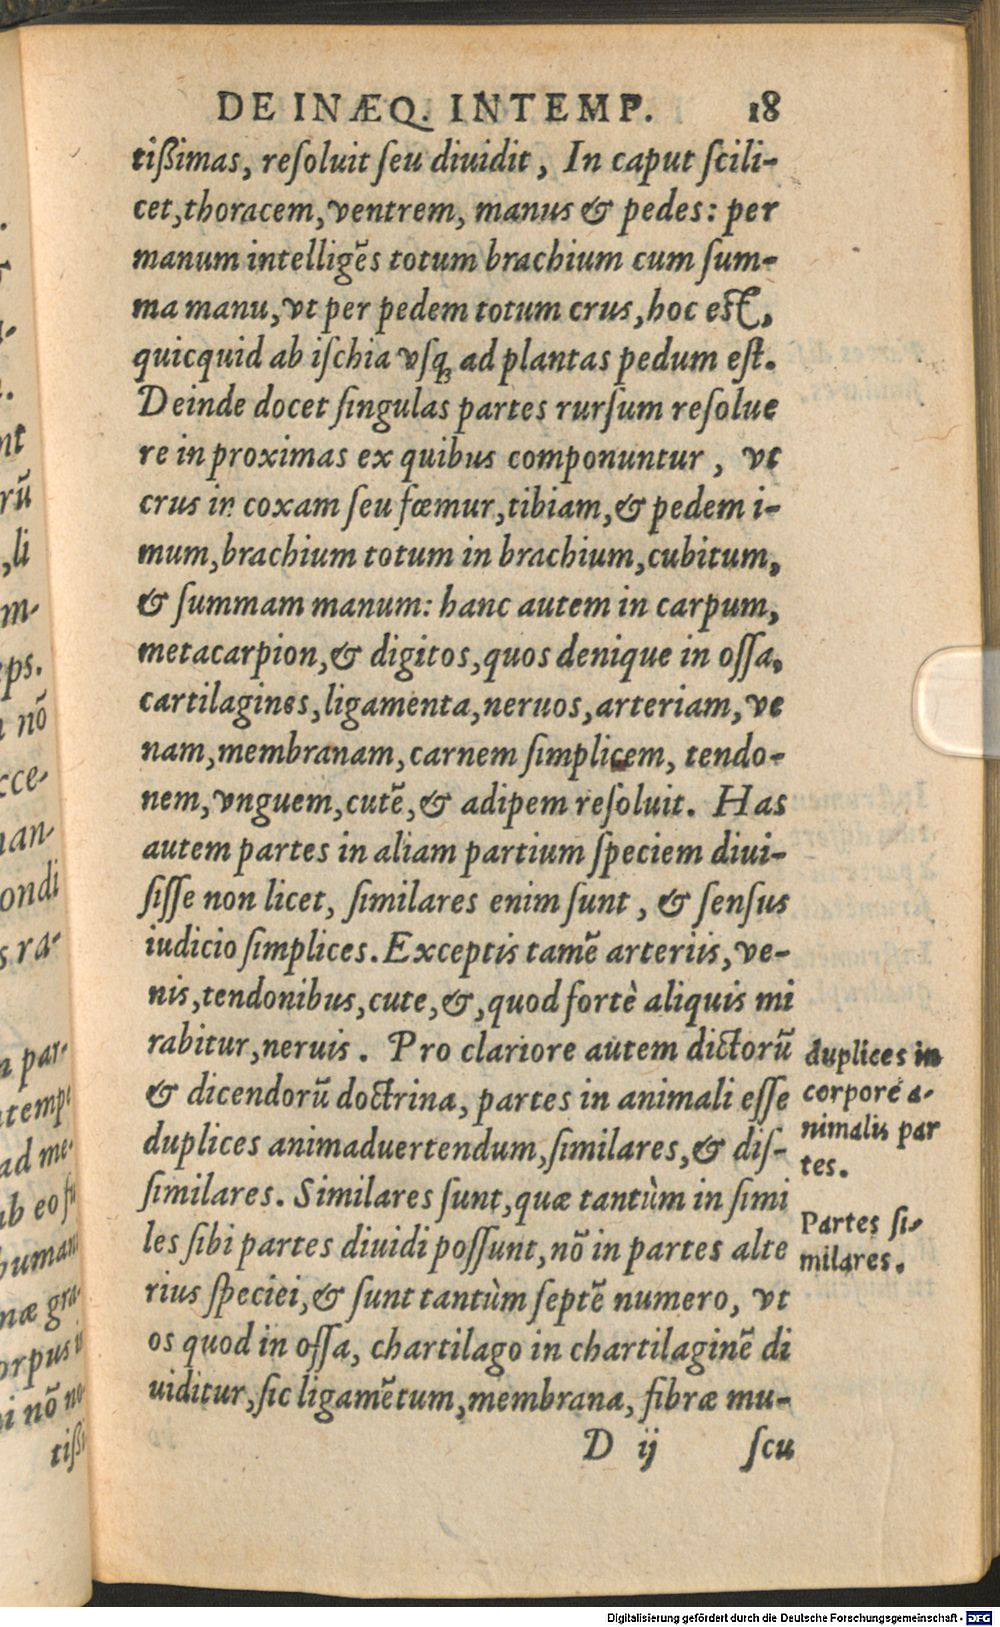 DE INÆQ. INTEMP. 18
tißimas, reſoluit ſeu diuidit, In caput ſcili-
cet, thoracem, ventrem, manus & pedes: per
manum intelligẽs totum brachium cum ſum-
ma manu, vt per pedem totum crus, hoc eſt,
quicquid ab iſchia vſqꝫ ad plantas pedum eſt.
Deinde docet ſingulas partes rurſum reſolue
re in proximas ex quibus componuntur, vt
crus in coxam ſeu fœmur, tibiam, & pedem i-
mum, brachium totum in brachium, cubitum,
& ſummam manum: hanc autem in carpum,
metacarpion, & digitos, quos denique in oſſa,
cartilagines, ligamenta, neruos, arteriam, ve
nam, membranam, carnem ſimplicem, tendo-
nem, vnguem, cutẽ, & adipem reſoluit. Has
autem partes in aliam partium ſpeciem diui-
ſiſſe non licet, ſimilares enim ſunt, & ſenſus
iudicio ſimplices. Exceptis tamẽ arteriis, ve-
nis, tendonibus, cute, &, quod fortè aliquis mi
rabitur, neruis. Pro clariore autem dictorũ
& dicendorũ doctrina, partes in animali eſſe
duplices animaduertendum, ſimilares, & diſ-
ſimilares. Similares ſunt, quæ tantùm in ſimi
les ſibi partes diuidi poſſunt, nõ in partes alte
rius ſpeciei, & ſunt tantùm ſeptẽ numero, vt
os quod in oſſa, chartilago in chartilaginẽ di
uiditur, ſic ligamẽtum, membrana, fibræ mu-
D ij ſcu
duplices in
corpore a-
nimalis par
tes.
Partes ſi-
milares.
Digitalisierung gefördert durch die Deutsche Forschungsgemeinschaft - DFG